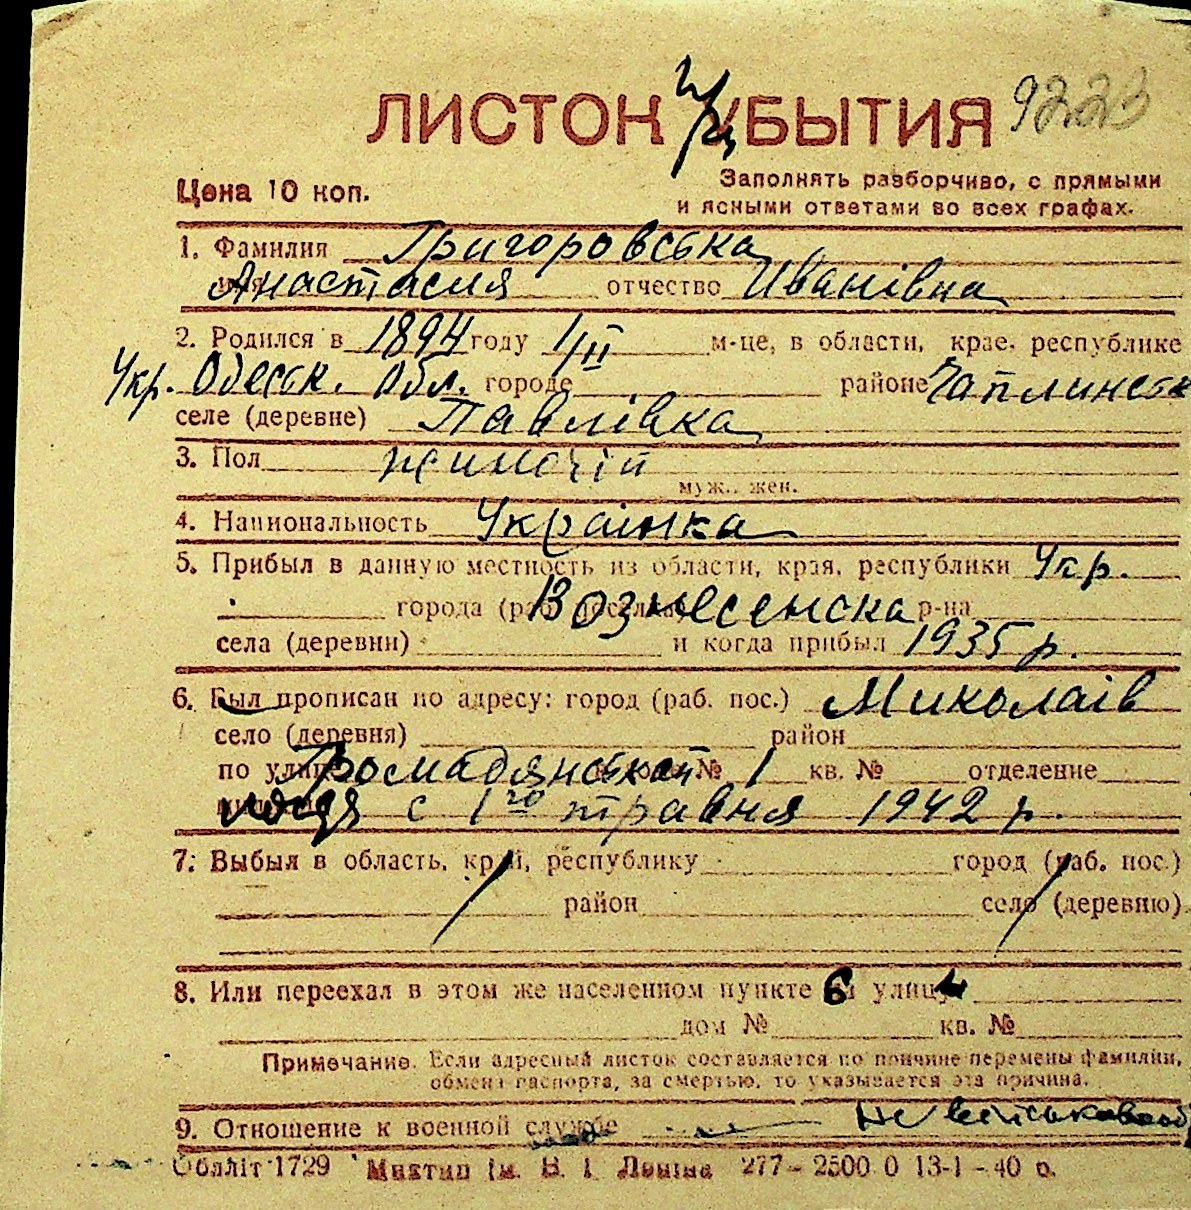 ЛИСТОК УБЫТИЯ 9223
Цена 10 коп.
Заполнять разборчиво, с прямыми
и ясными ответами во всех графах.
1. Фамилия Григоровська
Анастасия отчество Иванівна
2. Родился в 1894 году 1/II м-це, в области, крае, республике
Укр. Одеськ. Обл. городе районе Чаплинськ
селе (деревне) Павлівка
3. Пол жиночій
муж., жен.
4. Национальность Українка
5. Прибыл в данную местность из области, края, республики Укр.
города (раб. поселка) Вознесенска р-на
села (деревни) и когда прибыл 1935 р.
6. Был прописан по адресу: город (раб. пос.) Миколаів
село (деревня) район
по улице Громадянській № 1 кв. № отделение
с 1го травня 1942 р.
7. Выбыл в область, край, республику город (раб. пос.)
район село (деревню)
8. Или переехал в этом же населенном пункте улицу
дом № кв. №
Примечание. Если адресный листок составляется по причине перемены фамилии,
обмена паспорта, за смертью, то указывается эта причина.
9. Отношение к военной службе не військовооб
Обліт 1729 Миктип ім. В. І. Леніна 277 - 2500 0 13-1 - 40 р.